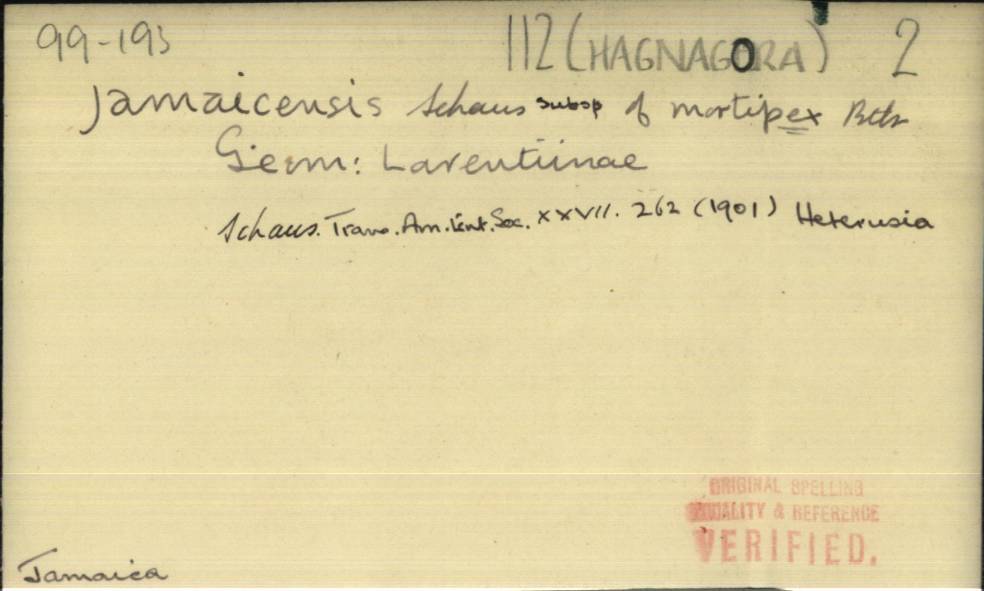 99-193 112 (HAGNAGORA) 2
Jamaicensis Schaus subsp of mortipex Btlr
Geom: Larentiinae
Schaus. Trans. Am. Ent. Soc. XXVII. 262 (1901) Heterusia
ORIGINAL SPELLING
LOCALITY & REFERENCE
VERIFIED.
Jamaica